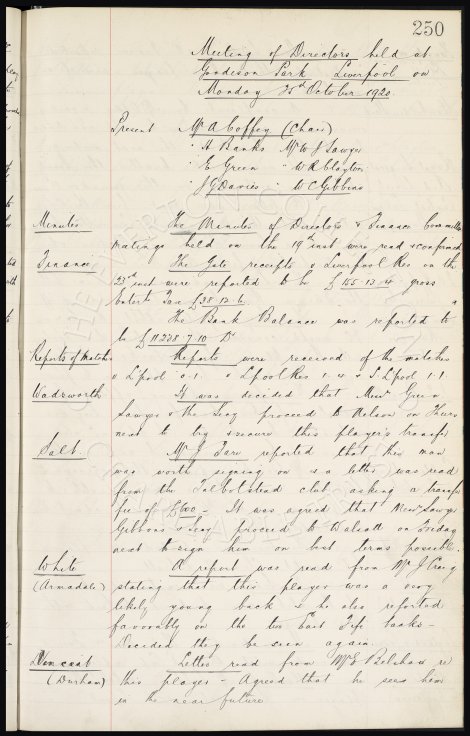 250
Meeting of Directors held at
Goodison Park Liverpool on
Monday 25th October 1920.
Present Mr A Coffey (Chair)
" H Banks Mr W J Sawyer
" E Green " W R Clayton
" J G Davies " W C Gibbins
Minutes The Minutes of Directors & Finance Committee
meetings held on the 19th inst were read & confirmed
Finance The Gate receipts v Liverpool Res on the
23rd inst were reported to be £155.13.4 gross
Entert Tax £38.12.6.
The Bank Balance was reported to
be £11,238.7.10 Dr
Reports of Matches Reports were received of the matches
v L'pool 0.1. v L'pool Res 1.4 v S L'pool 1.1
Wadsworth It was decided that Messrs Green
Sawyer & the Secy proceed to Nelson on Thurs
next to try & secure this player's transfer
Salt. Mr J reported that this man
was worth signing on & a letter was read
from the Talbot Stead club asking a transfer
fee of £600 - It was agreed that Messrs Sawyer
Gibbins & Secy proceed to Walsall on Friday
next to sign him on best terms possible.
White A report was read from Mr J Craig
(Armadale) stating that this player was a very
likely young back & he also reported
favorably on the two East Fife backs -
Decided they be seen again.
Vincent Letter read from Mr E Belshaw re
(Durham) this player - Agreed that he sees him
in the near future